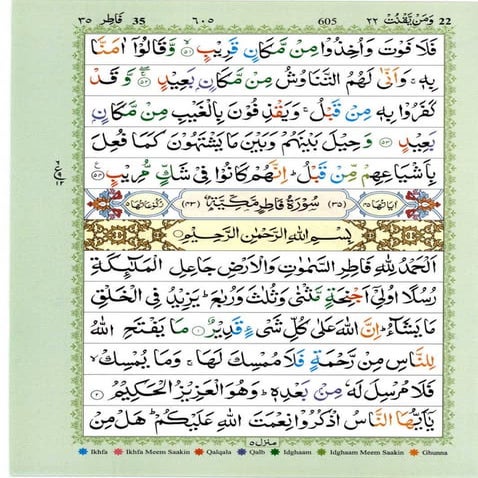 22 وَمَن يَّقۡنُتۡ ٢٢ 605 ٦٠٥ 35 فَاطِر ٣٥
فَلَا فَوۡتَ وَاُخِذُوۡا مِنۡ مَّكَانٍ قَرِيۡبٍ ۙ‏ ﴿۵۱﴾ وَّقَالُوۡۤا اٰمَنَّا
بِهٖ‌ ۚ وَاَنّٰى لَهُمُ التَّنَاوُشُ مِنۡ مَّكَانٍۢ بَعِيۡدٍ ۖۚ‏ ﴿۵۲﴾ وَّقَدۡ
كَفَرُوۡا بِهٖ مِنۡ قَبۡلُۚ وَيَقۡذِفُوۡنَ بِالۡغَيۡبِ مِنۡ مَّكَانٍۢ
بَعِيۡدٍ‏ ﴿۵۳﴾ وَحِيۡلَ بَيۡنَهُمۡ وَبَيۡنَ مَا يَشۡتَهُوۡنَ كَمَا فُعِلَ
بِاَشۡيَاعِهِمۡ مِّنۡ قَبۡلُؕ اِنَّهُمۡ كَانُوۡا فِىۡ شَكٍّ مُّرِيۡبٍ‏ ﴿۵۴﴾
اٰيَاتُهَا ٤٥ (٣٥) سُوۡرَةُ فَاطِرٍ مَّكِّيَّةٌ (٤٣) رُكُوۡعَاتُهَا ٥
بِسۡمِ اللهِ الرَّحۡمٰنِ الرَّحِيۡمِ
اَلۡحَمۡدُ لِلّٰهِ فَاطِرِ السَّمٰوٰتِ وَالۡاَرۡضِ جَاعِلِ الۡمَلٰٓٮِٕكَةِ
رُسُلًا اُولِىۡۤ اَجۡنِحَةٍ مَّثۡنٰى وَثُلٰثَ وَرُبٰعَؕ يَزِيۡدُ فِى الۡخَـلۡقِ
مَا يَشَآءُؕ اِنَّ اللّٰهَ عَلٰى كُلِّ شَىۡءٍ قَدِيۡرٌ‏ ﴿۱﴾ مَا يَفۡتَحِ اللّٰهُ
لِلنَّاسِ مِنۡ رَّحۡمَةٍ فَلَا مُمۡسِكَ لَهَا ۚ وَمَا يُمۡسِكۡ ۙ
فَلَا مُرۡسِلَ لَهٗ مِنۡۢ بَعۡدِهٖؕ وَهُوَ الۡعَزِيۡزُ الۡحَكِيۡمُ‏ ﴿۲﴾
يٰۤاَيُّهَا النَّاسُ اذۡكُرُوۡا نِعۡمَتَ اللّٰهِ عَلَيۡكُمۡؕ هَلۡ مِنۡ
منزل ٥
Ikhfa Ikhfa Meem Saakin Qalqala Qalb Idghaam Idghaam Meem Saakin Ghunna